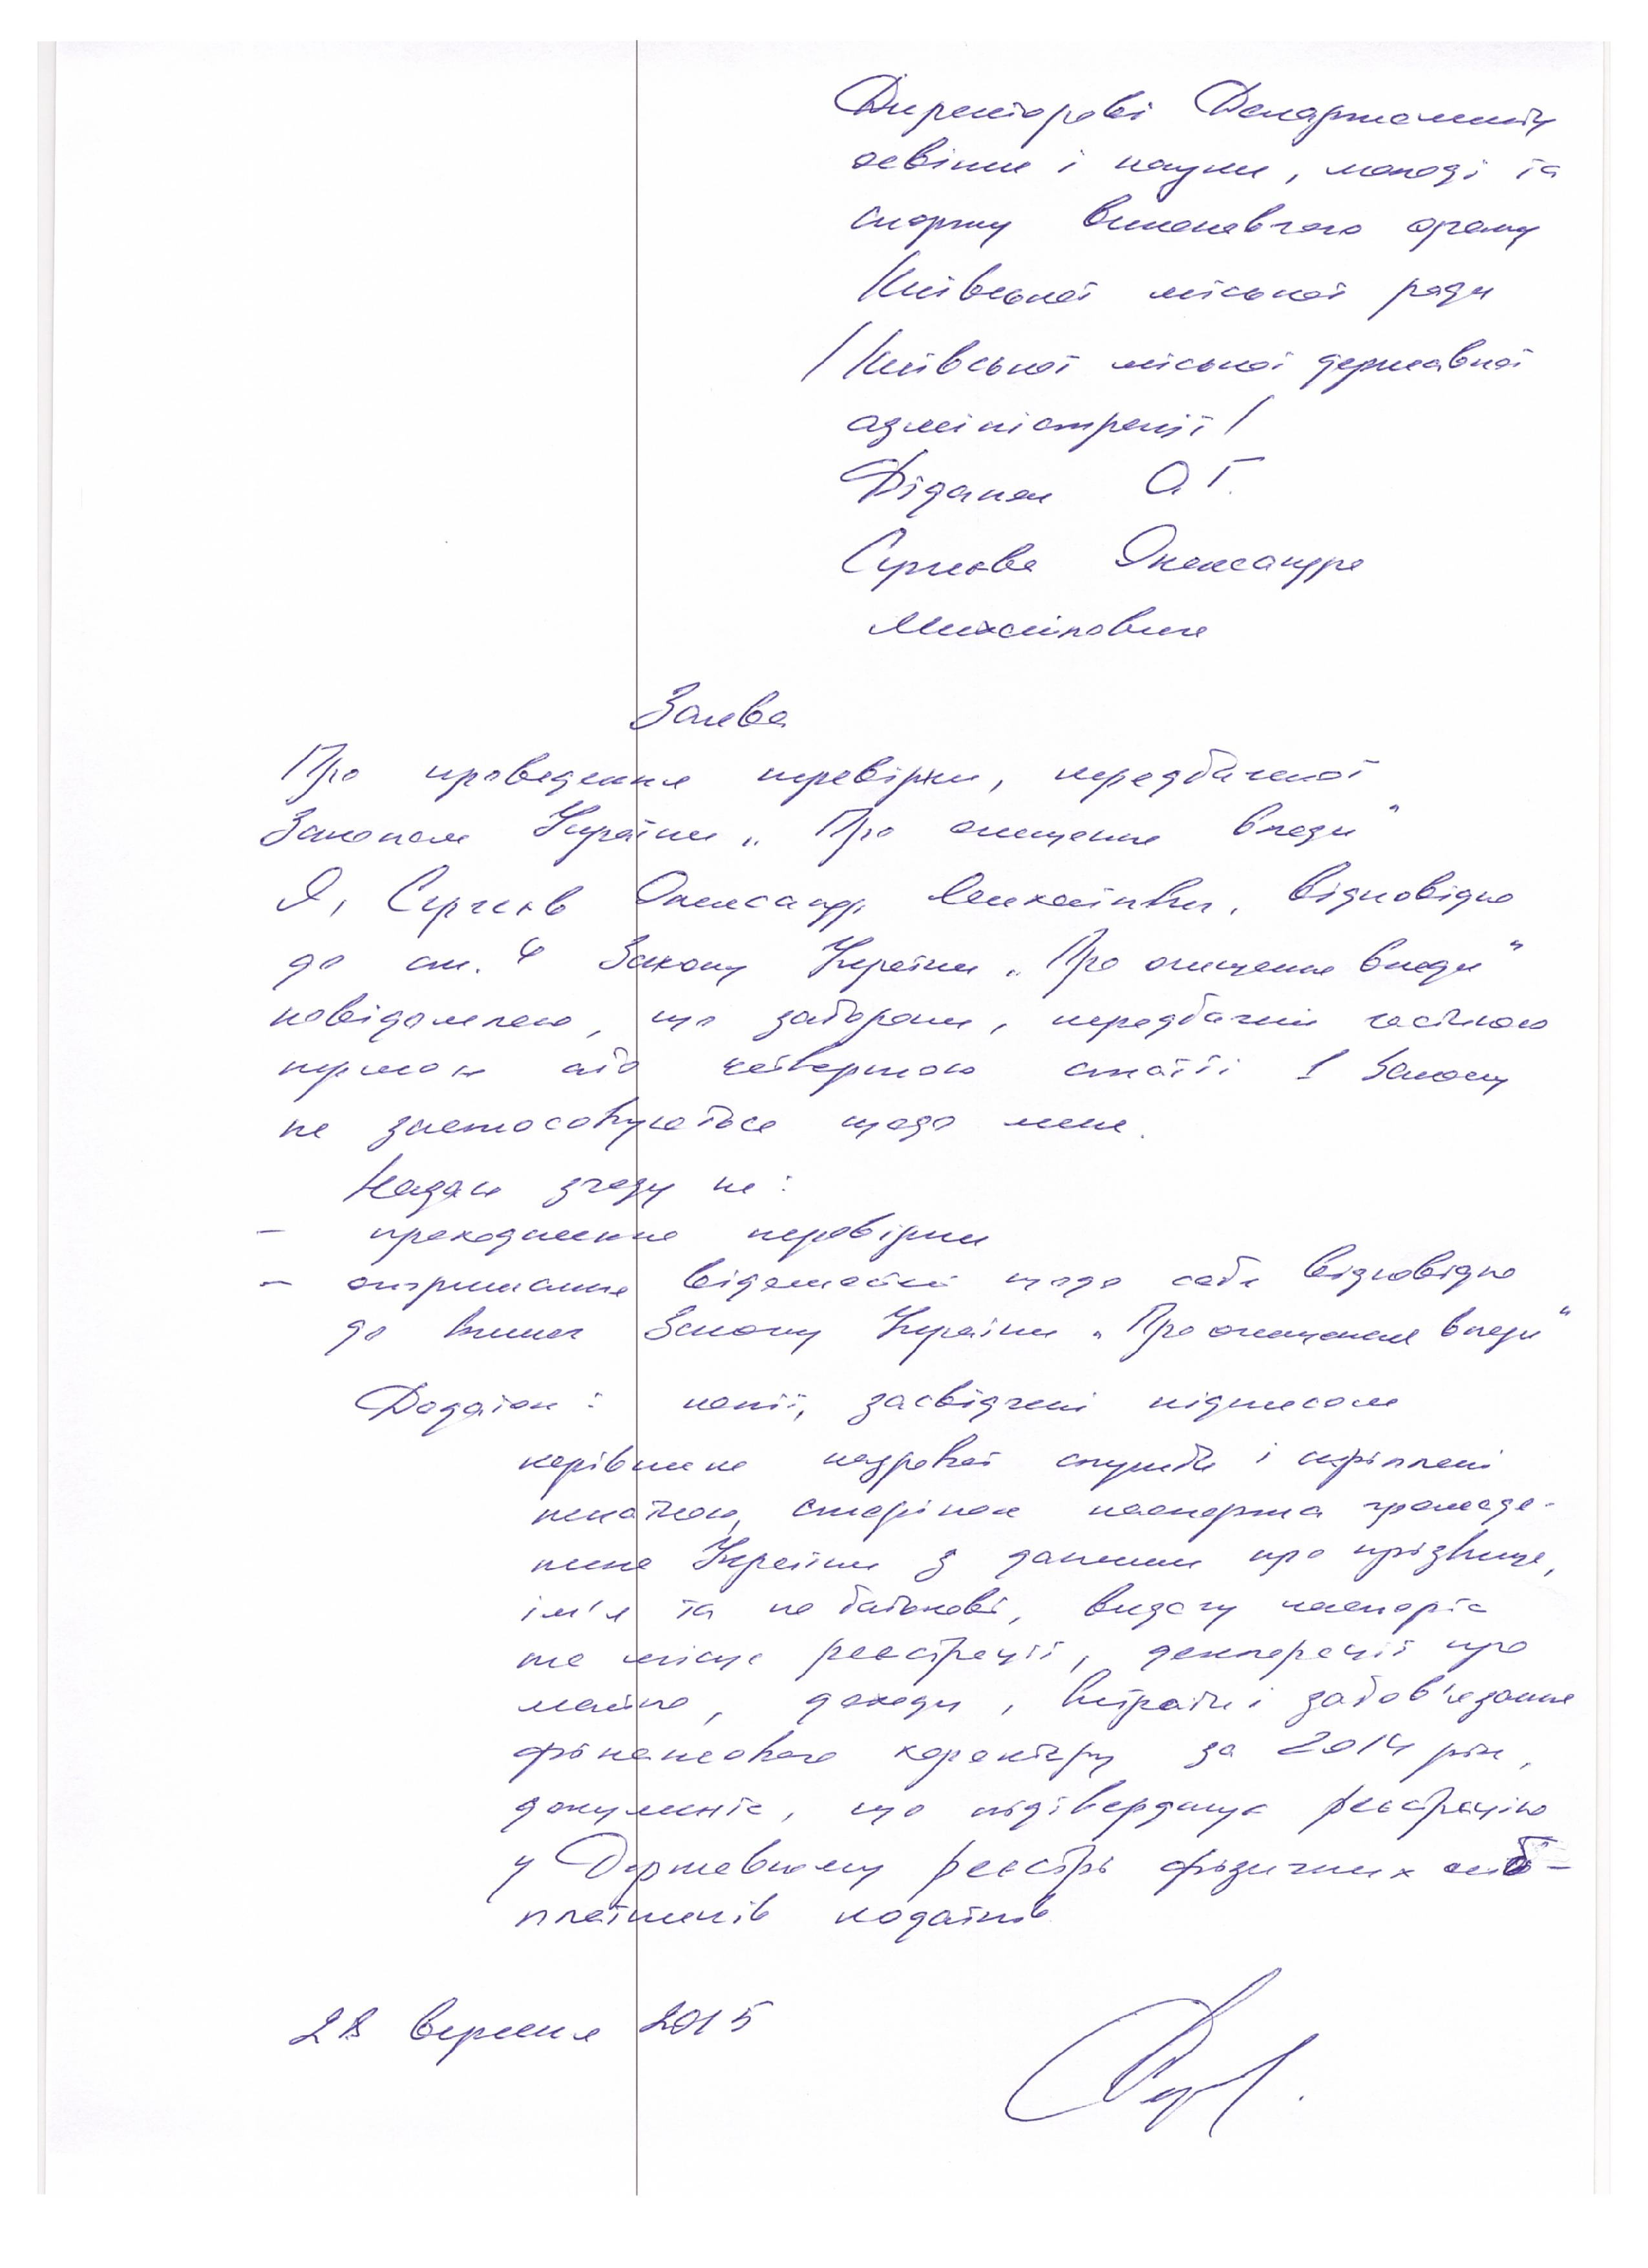 Директорові Департаменту
освіти і науки, молоді та
спорту виконавчого органу
Київської міської ради
/Київської міської державної
адміністрації/
Фіданян О.Г.
Олександра
Михайловича
Заява
Про проведення перевірки, передбаченої
Законом України „Про очищення влади"
Я, Олександр Михайлович, відповідно
до ст. 4 Закону України „Про очищення влади"
повідомляю, що заборони, передбачені частиною
першою або четвертою статті 1 Закону
не застосовуються щодо мене.
Надаю згоду на:
- проходження перевірки
- отримання відомостей щодо себе відповідно
до вимог Закону України „Про очищення влади"
Додаток: копії, засвідчені підписом
керівника кадрової служби і скріплені
печаткою, сторінок паспорта громадя-
нина України з даними про прізвище,
ім'я та по батькові, видачу паспорта
та місце реєстрації, декларації про
майно, доходи, витрати і зобов'язання
фінансового характеру за 2014 рік,
документа, що підтверджує реєстрацію
у Державному реєстрі фізичних осіб -
платників податків
28 вересня 2015